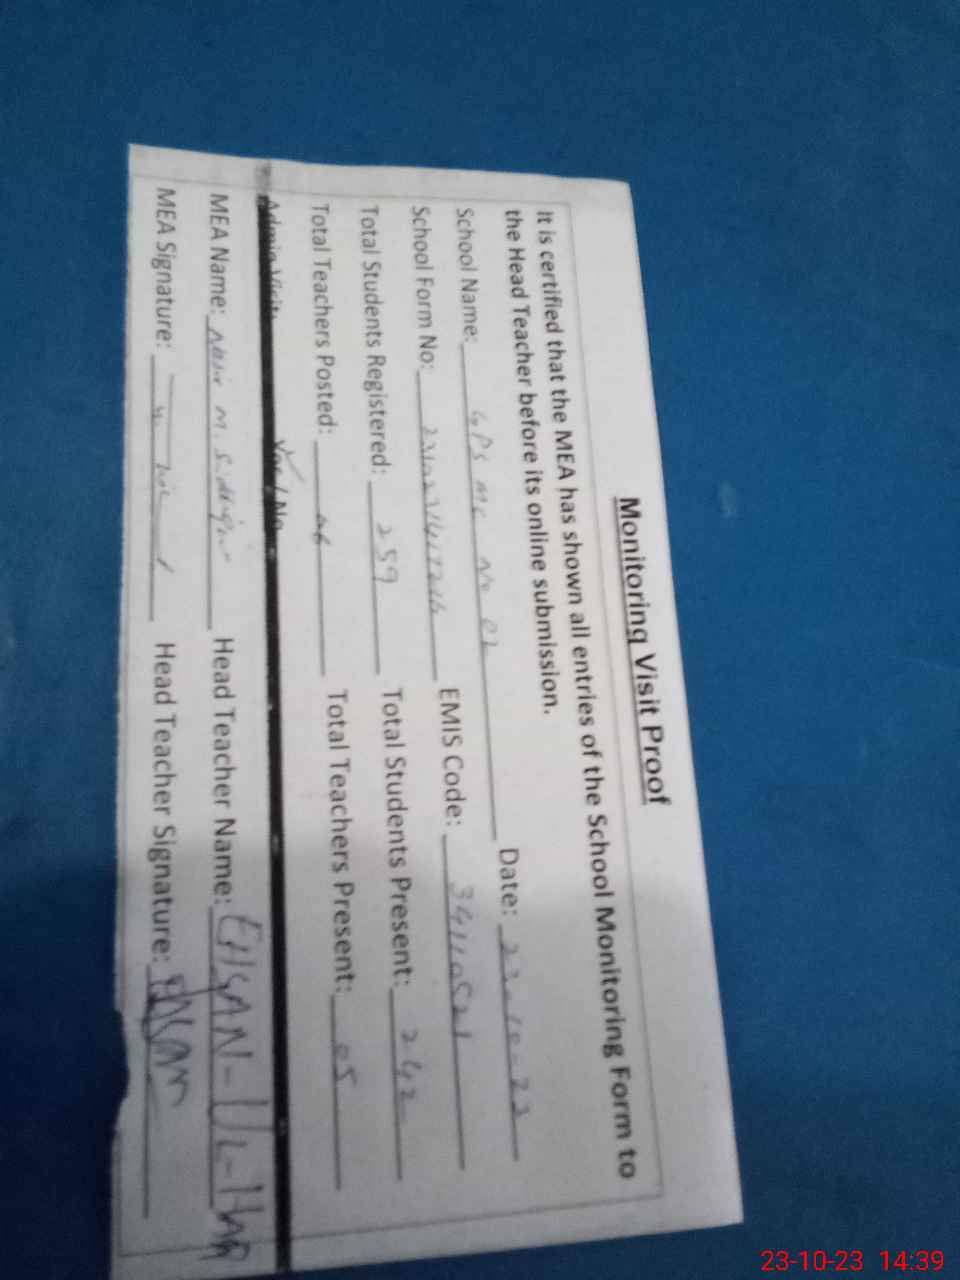 Monitoring Visit Proof
It is certified that the MEA has shown all entries of the School Monitoring Form to
the Head Teacher before its online submission.
School Name: GPS MC No 02 Date: 23-10-23
School Form No: EMIS Code: 34110521
Total Students Registered: 259 Total Students Present: 242
Total Teachers Posted: 06 Total Teachers Present: 05
Admin Visit: Yes / No
MEA Name: M. Head Teacher Name: EHSAN-UL-HAQ
MEA Signature: Head Teacher Signature: Ehsan
23-10-23 14:39